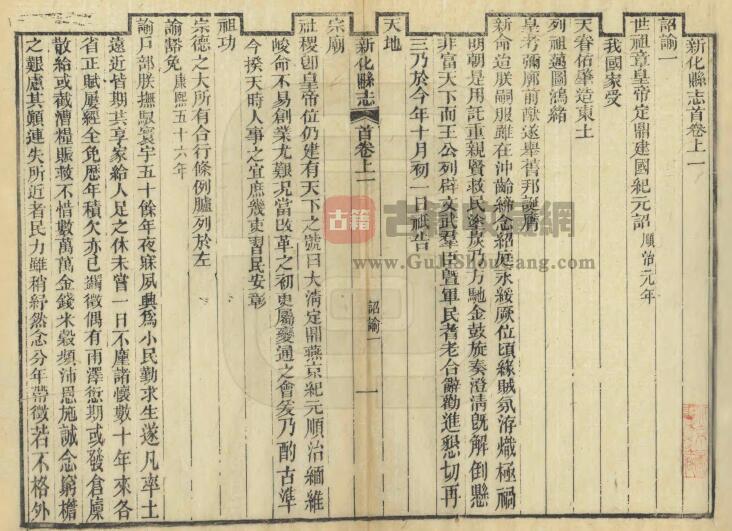 新化縣志首卷上一
詔諭一
世祖章皇帝定鼎建國紀元詔 順治元年
我國家受
天眷佑肇造東土
列祖邁圖鴻緒
皇考彌廓前猷遂舉舊邦誕膺
新命迨朕嗣服雖在沖齡締念紹庭永綏厥位頃緣賊氛洊熾極禍
明朝是用託重親賢救民塗炭乃方馳金鼓旋奏澄清旣解倒懸
非富天下而王公列辟文武羣臣暨軍民耆老合辭勸進懇切再
三乃於今年十月初一日祗告
天地
新化縣志
首卷上一
詔諭一
一
宗廟
社稷卽皇帝位仍建有天下之號曰大淸定鼎燕京紀元順治緬維
峻命不易創業尤艱況當改革之初更屬變通之會爰乃酌古準
今揆天時人事之宜庶幾吏習民安彰
祖功
宗德之大所有合行條例臚列於左
諭豁免 康熙五十六年
諭戶部朕撫馭寰宇五十餘年夜寐夙興爲小民勤求生遂凡率土
遠近皆期其亨家給人足之休未嘗一日不廑諸懷數十年來各
省正賦屢經全免歷年積欠亦已蠲徵偶有雨澤愆期或發倉廩
散給或截漕糧賑救不惜數萬萬金錢米穀頻沛恩施誠念窮檐
之艱慮其顚連失所近者民力雖稍紓然念分年帶徵若不格外
古籍
www.GuJiShouCang.com